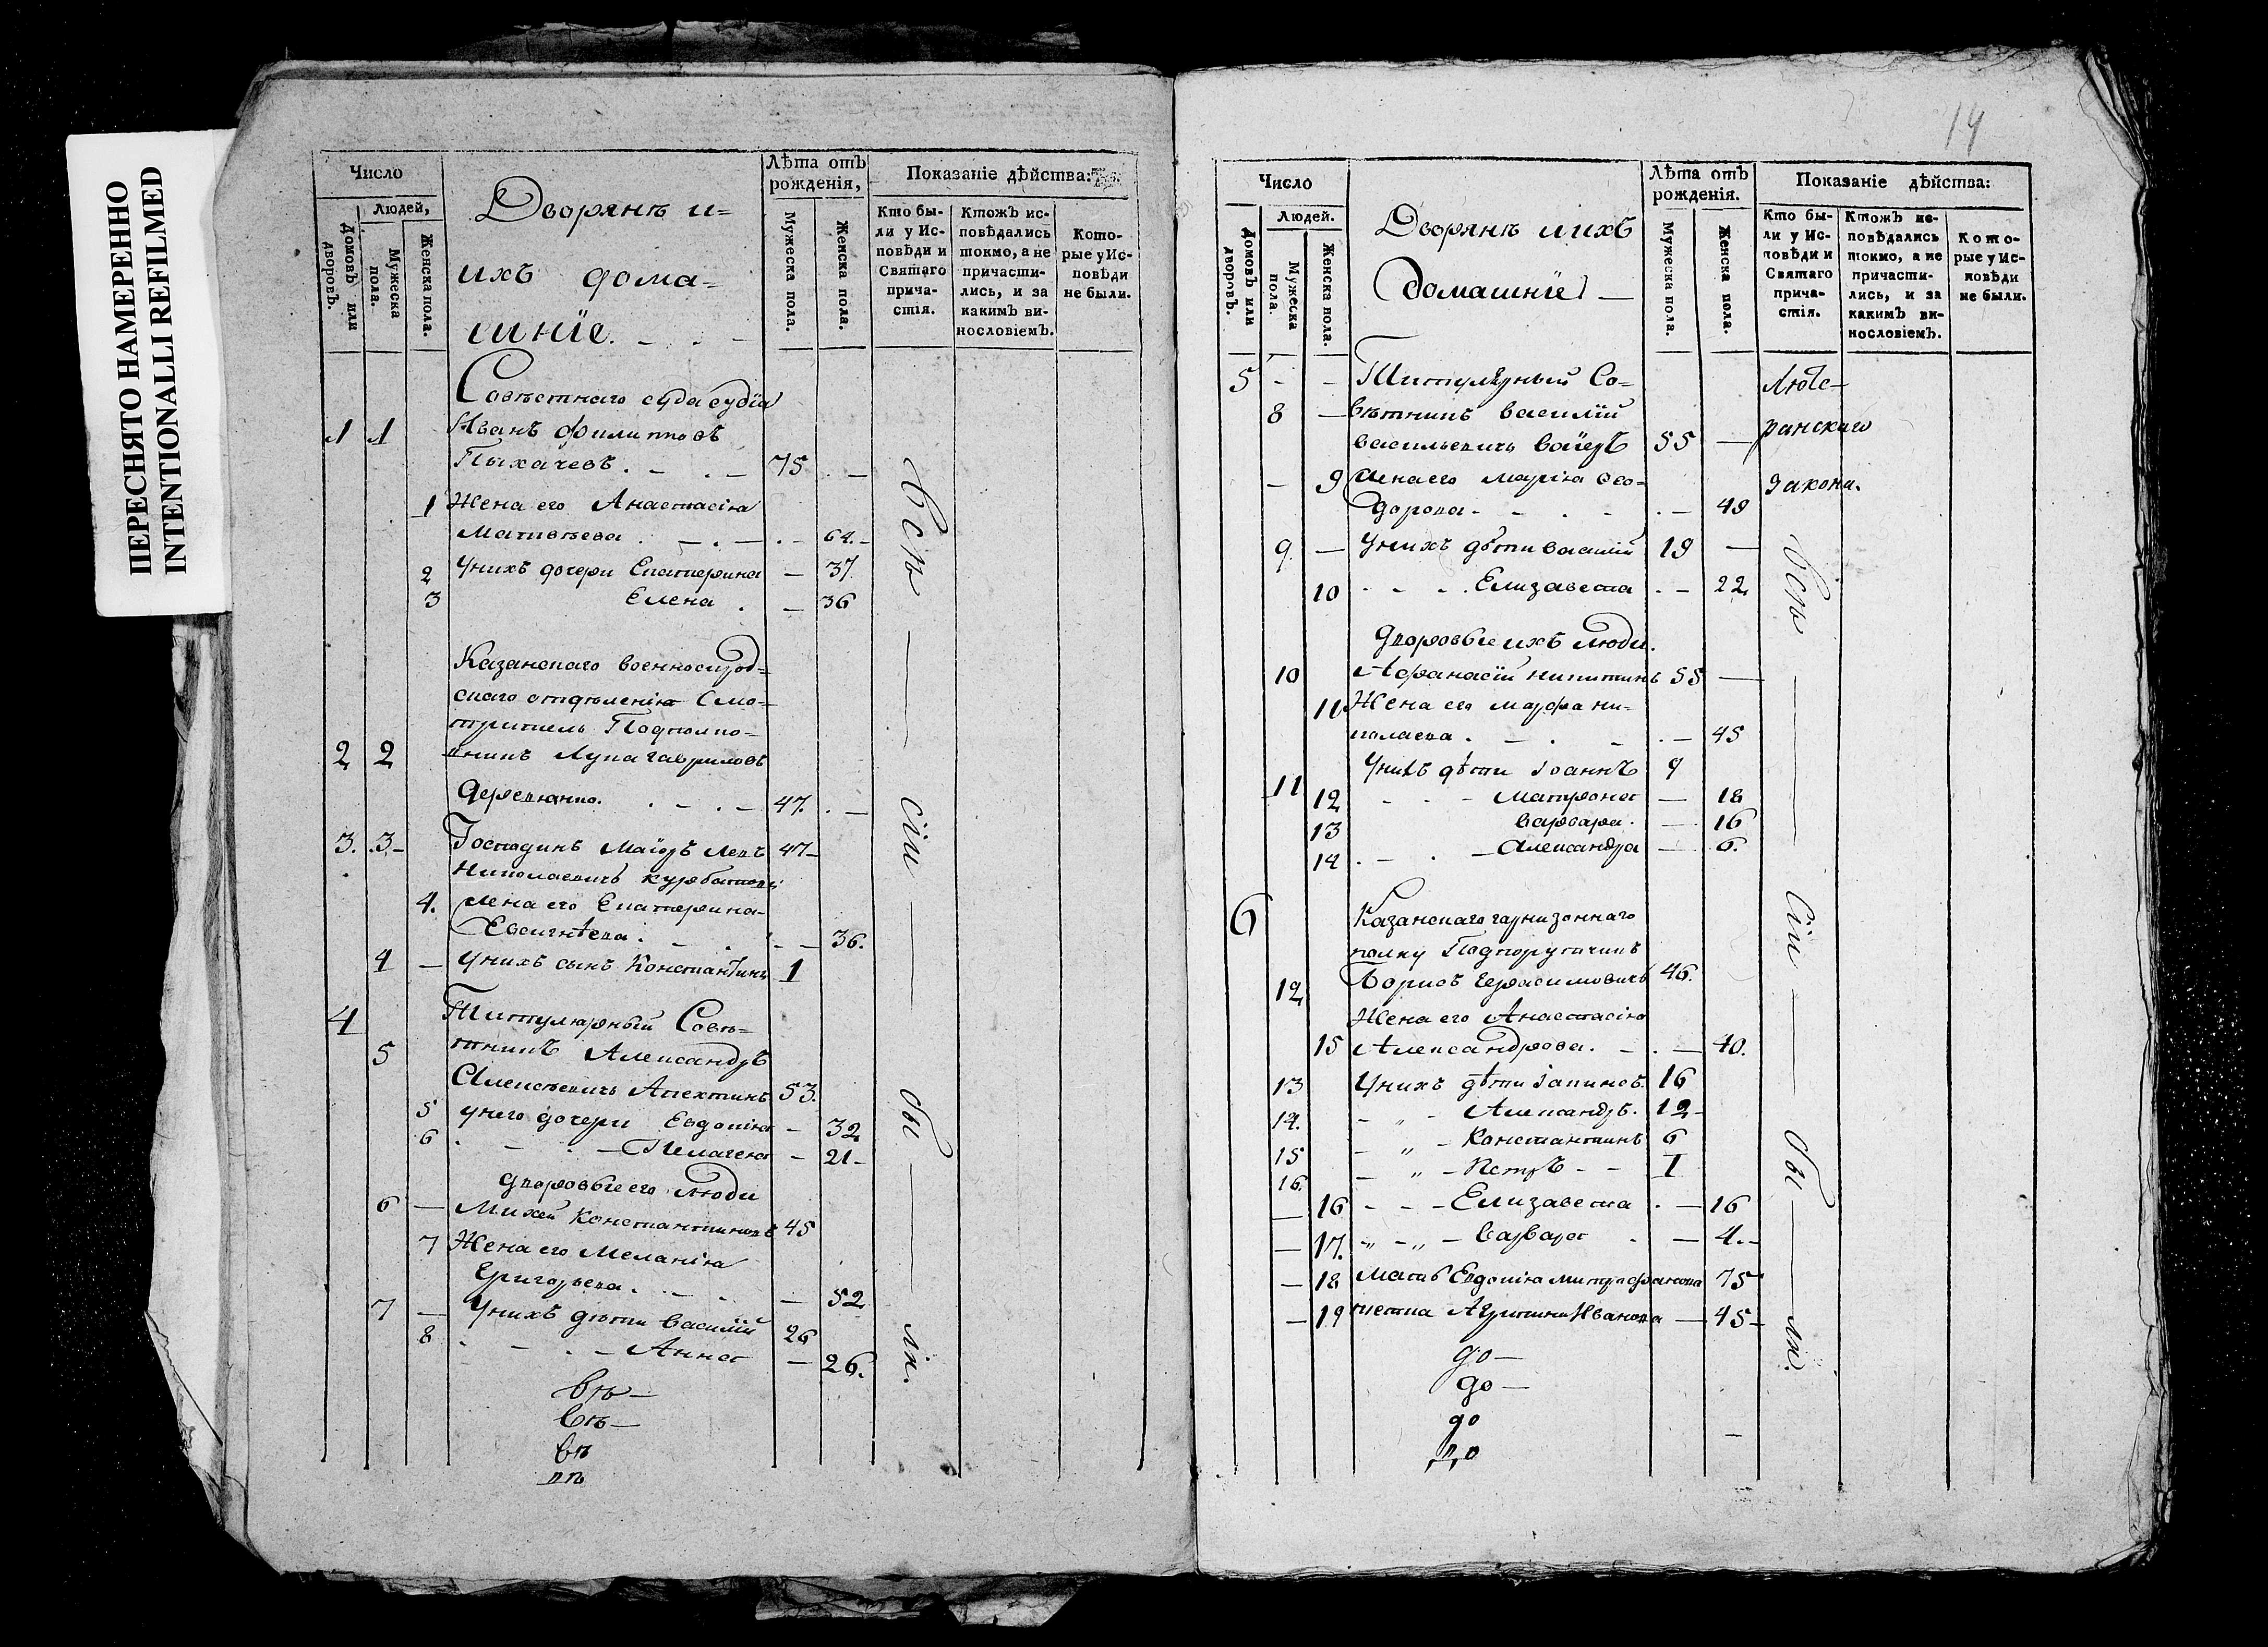 ПЕРЕСНЯТО НАМЕРЕННО
INTENTIONALLI REFILMED
Число
Людей,
Домовъ или дворовъ.
Мужеска пола.
Женска пола.
Дворянъ и=
ихъ дома=
шнїе.
Лѣта отъ рожденія,
Мужеска пола.
Женска пола.
Показаніе дѣйства:
Кто бы-
ли у Ис-
повѣди и
Святаго
прича-
стія.
Ктожъ ис-
повѣдались
токмо, а не
причасти-
лись, и за
какимъ ви-
нословіемъ.
Кото-
рые у Ис-
повѣди
не были.
Совѣстнаго суда судїа
1 1 Иванъ Филиповъ
Пыхачевъ. 75 —
1 Жена его Анастасіа
Матвѣева . — 64.
2 Унихъ дочери Екатерина — 37
3 Елена . — 36
Казанскаго военносирод=
скаго отдѣленія Смо=
тритель Подполко=
2 2 вникъ Лука Гавриловъ
47. —
3. 3 Господинъ Маїоръ Левъ 47
Николаевичъ Курбатовъ
4. Жена его Екатерина
Евсигнѣева . — 36.
4 — Унихъ сынъ Константинъ 1
4 Титулярный Совѣ=
5 тникъ Александръ
Алексѣевичъ Апехтинъ 53.
5 унего дочери Евдокіа — 32
6 Пелагея — 21
дворовыеего люди
6 — Михей Константиновъ 45
7 Жена его Меланіа
Григорьева . — 52
7 — Унихъ дѣти Василїй 26
8 Анна — 26.
вѣ—
вѣ—
вѣ
вѣ
Всѣ — сїи — бы — ли.
14
Число
Людей.
Домовъ или дворовъ.
Мужеска пола.
Женска пола.
Дворянъ иихъ
Домашнїе —
Лѣта отъ рожденія.
Мужеска пола.
Женска пола.
Показаніе дѣйства:
Кто бы-
ли у Ис-
повѣди и
Святаго
прича-
стія.
Ктожъ ис-
повѣдались
токмо, а не
причасти-
лись, и за
какимъ ви-
нословіемъ.
Кото-
рые у Ис-
повѣди
не были.
5 - - Титулярный Со= Люте—
8 — вѣтникъ Василїй
Васильевичъ 55 — ранскаго
— 9 Жена его Маріа Ѳео= закона.
дорова — 49
9 — Унихъ дѣти Василїй 19 —
10 Елизавета — 22
дворовые ихъ люди.
10 Афанасїй Никитинъ 55 —
11 Жена его Марфа Ни=
колаева . — 45
11 Унихъ дѣти Іоаннъ 9
12 Матрона — 18
13 Варвара. — 16
14 Александра — 6.
6 Казанскаго гарнизоннаго
полку Подпоручикъ
12 Борисъ Герасимовичъ 46.
Жена его Анастасіа
15 Александрова. — 40.
13 Унихъ дѣти Іакинѳъ 16
14. Александръ. 12
15 Константинъ 6
16. Петръ 1
— 16 Елизавета — 16
— 17. Варвара — 4.
— 18 Мать Евдокіа Митрофанова 75
— 19 тетка Агрипина Иванова — 45
до—
до—
до
до
Всѣ — сїи — бы — ли.